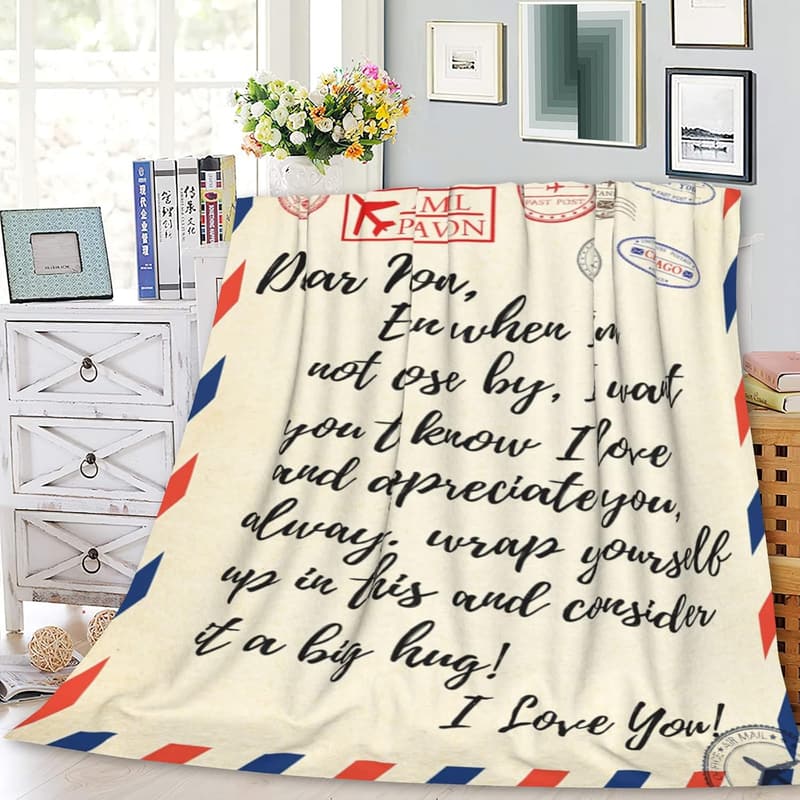 ML
PAVON
FAST POST
CHICAGO
现代企业管理
管理创新
传承文化
Dear Son,
En when Im
not ose by, I want
you t know I love
and apreciate you,
alway. wrap yourself
up in this and consider
it a big hug!
I Love You!
AIR MAIL